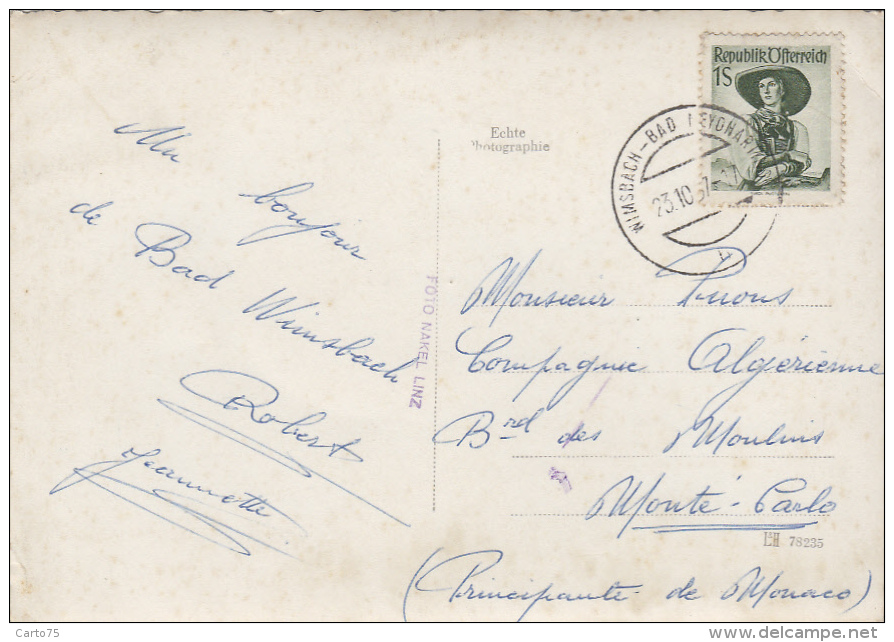 Republik Österreich
1S
WIMSBACH-BAD NEYDHARTING
23.10.57
Echte
Photographie
Un
bonjour
de Bad Wimsbach
Robert
Jeannette
FOTO NAKEL LINZ
Monsieur
Compagnie Algérienne
Brd des Moulins
Monté-Carlo
78235
(Principauté de Monaco)
Carto75
delcampe.net